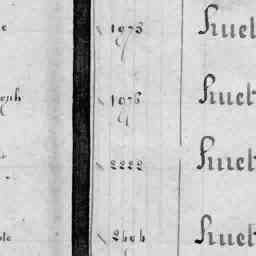 e 1973 huet
oph 1976 huet
2222 huet
ble 2604 huet